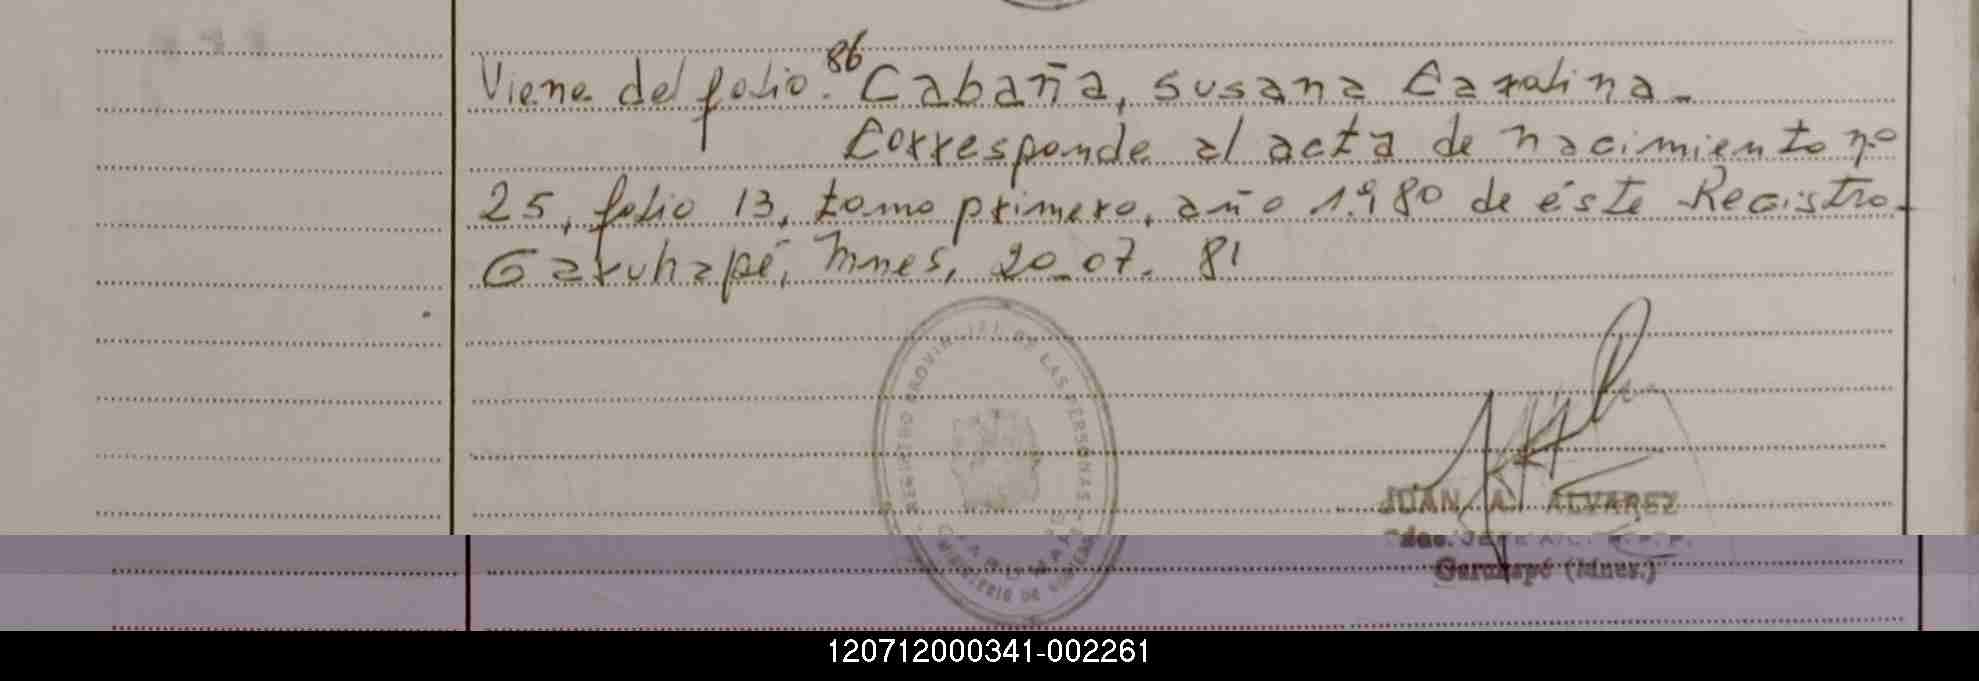 Viene del folio 86. Cabaña, Susana Carolina.-
Corresponde al acta de nacimiento nº
25, folio 13, tomo primero, año 1.980 de éste Registro.
Garuhapé, Mnes, 20.07.81
REGISTRO PROVINCIAL DE LAS PERSONAS
GARUHAPE
MINISTERIO DE GOBIERNO
JUAN A. ALVAREZ
Garuhapé (Mnes.)
120712000341-002261